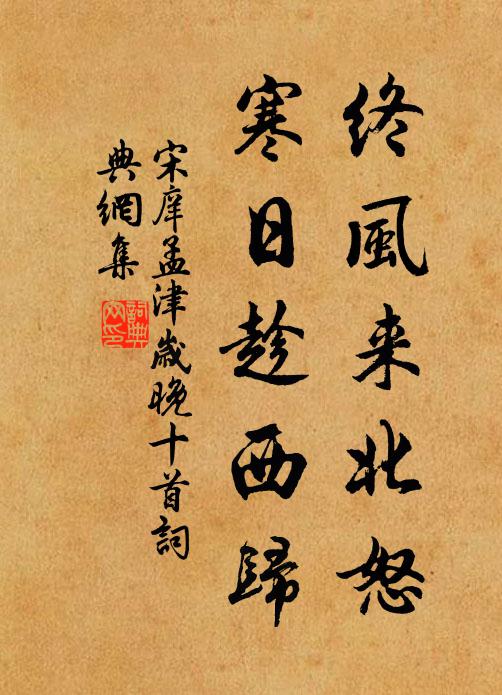 終風来北怒
寒日趁西歸
宋庠孟津歲晚十首詞
典網集
詞典
网印